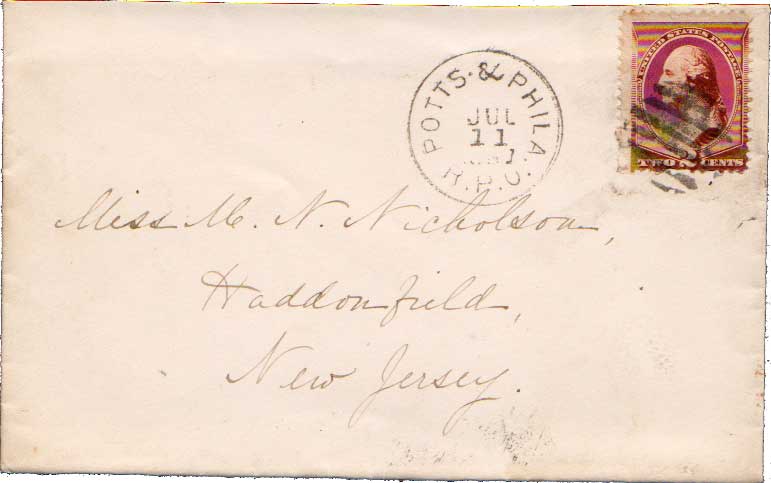 UNITED STATES POSTAGE
TWO 2 CENTS
POTTS. & PHILA
JUL
11
R.P.O.
Miss M. N. Nicholson,
Haddonfield,
New Jersey.